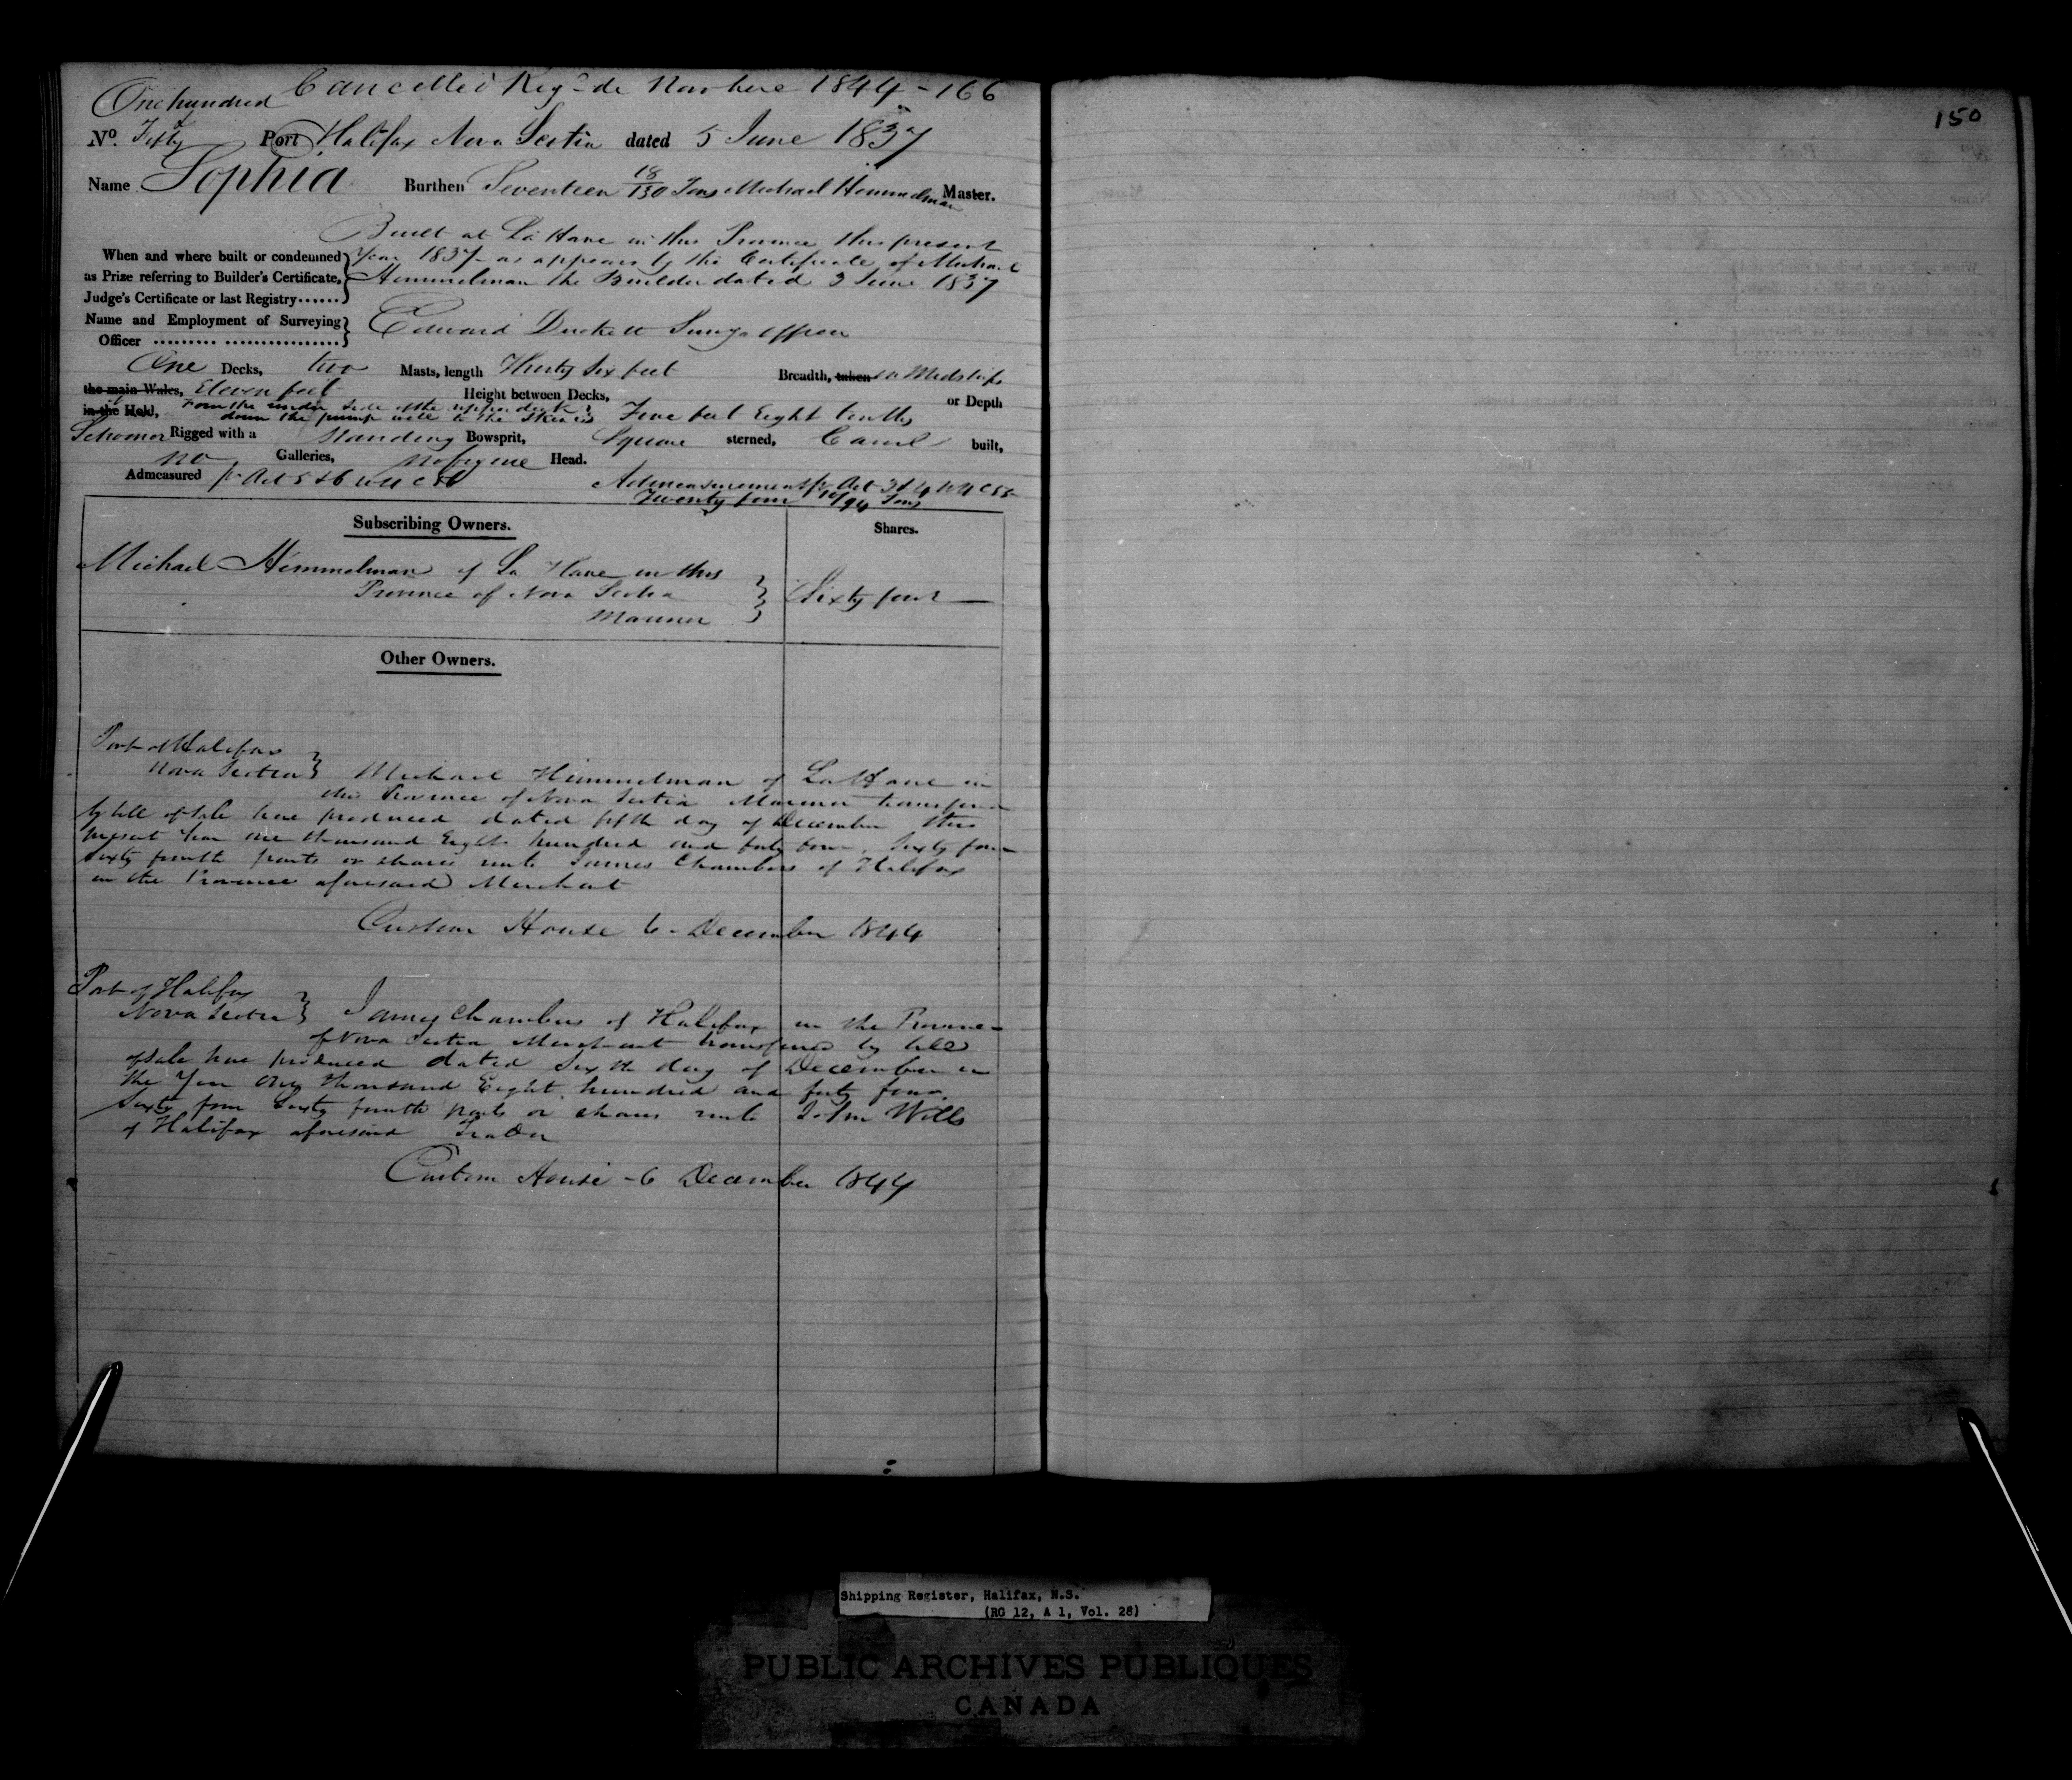 Cancelled Reg de Novo here 1844 - 166
One hundred
No. Fifty Port Halifax Nova Scotia dated 5 June 1837
Name Sophia Burthen Seventeen 18/130 Tons Michael Himmelman Master.
Built at La Have in this Province this present
When and where built or condemned Year 1837 as appears by the Certificate of Michael
as Prize referring to Builder's Certificate, Himmelman the Builder dated 3 June 1837
Judge's Certificate or last Registry......
Name and Employment of Surveying Edward Duckett Survg officer
Officer
One Decks, two Masts, length Thirty Six feet Breadth, taken in Midships
the main Wales, Eleven feet Height between Decks, or Depth
in the Hold, From the under side of the upper deck
down the pump well to the Skin is Five feet Eight tenths
Schooner Rigged with a Standing Bowsprit, Square sterned, Carvel built,
no Galleries, no figure Head.
Admeasured pr Act 5 & 6 Admeasurement pr Act 3 & 4
Twenty four /94 Tons
Subscribing Owners. Shares.
Michael Himmelman of La Have in this
Province of Nova Scotia Sixty four
Mariner
Other Owners.
Port of Halifax
Nova Scotia Michael Himmelman of La Have in
the Province of Nova Scotia Mariner transferred
by bill of sale here produced dated fifth day of December this
present Year one thousand Eight hundred and forty four, Sixty four
sixty fourth parts or shares unto James Chambers of Halifax
in the Province aforesaid Merchant
Custom House 6 - December 1844
Port of Halifax
Nova Scotia James Chambers of Halifax in the Province
of Nova Scotia Merchant transferred by bill
of sale here produced dated Sixth day of December in
the Year One thousand Eight hundred and forty four,
Sixty four Sixty fourth parts or shares unto John Wills
of Halifax aforesaid Trader
Custom House - 6 December 1844
150
Shipping Register, Halifax, N.S.
(RG 12, A 1, Vol. 28)
PUBLIC ARCHIVES PUBLIQUES
CANADA